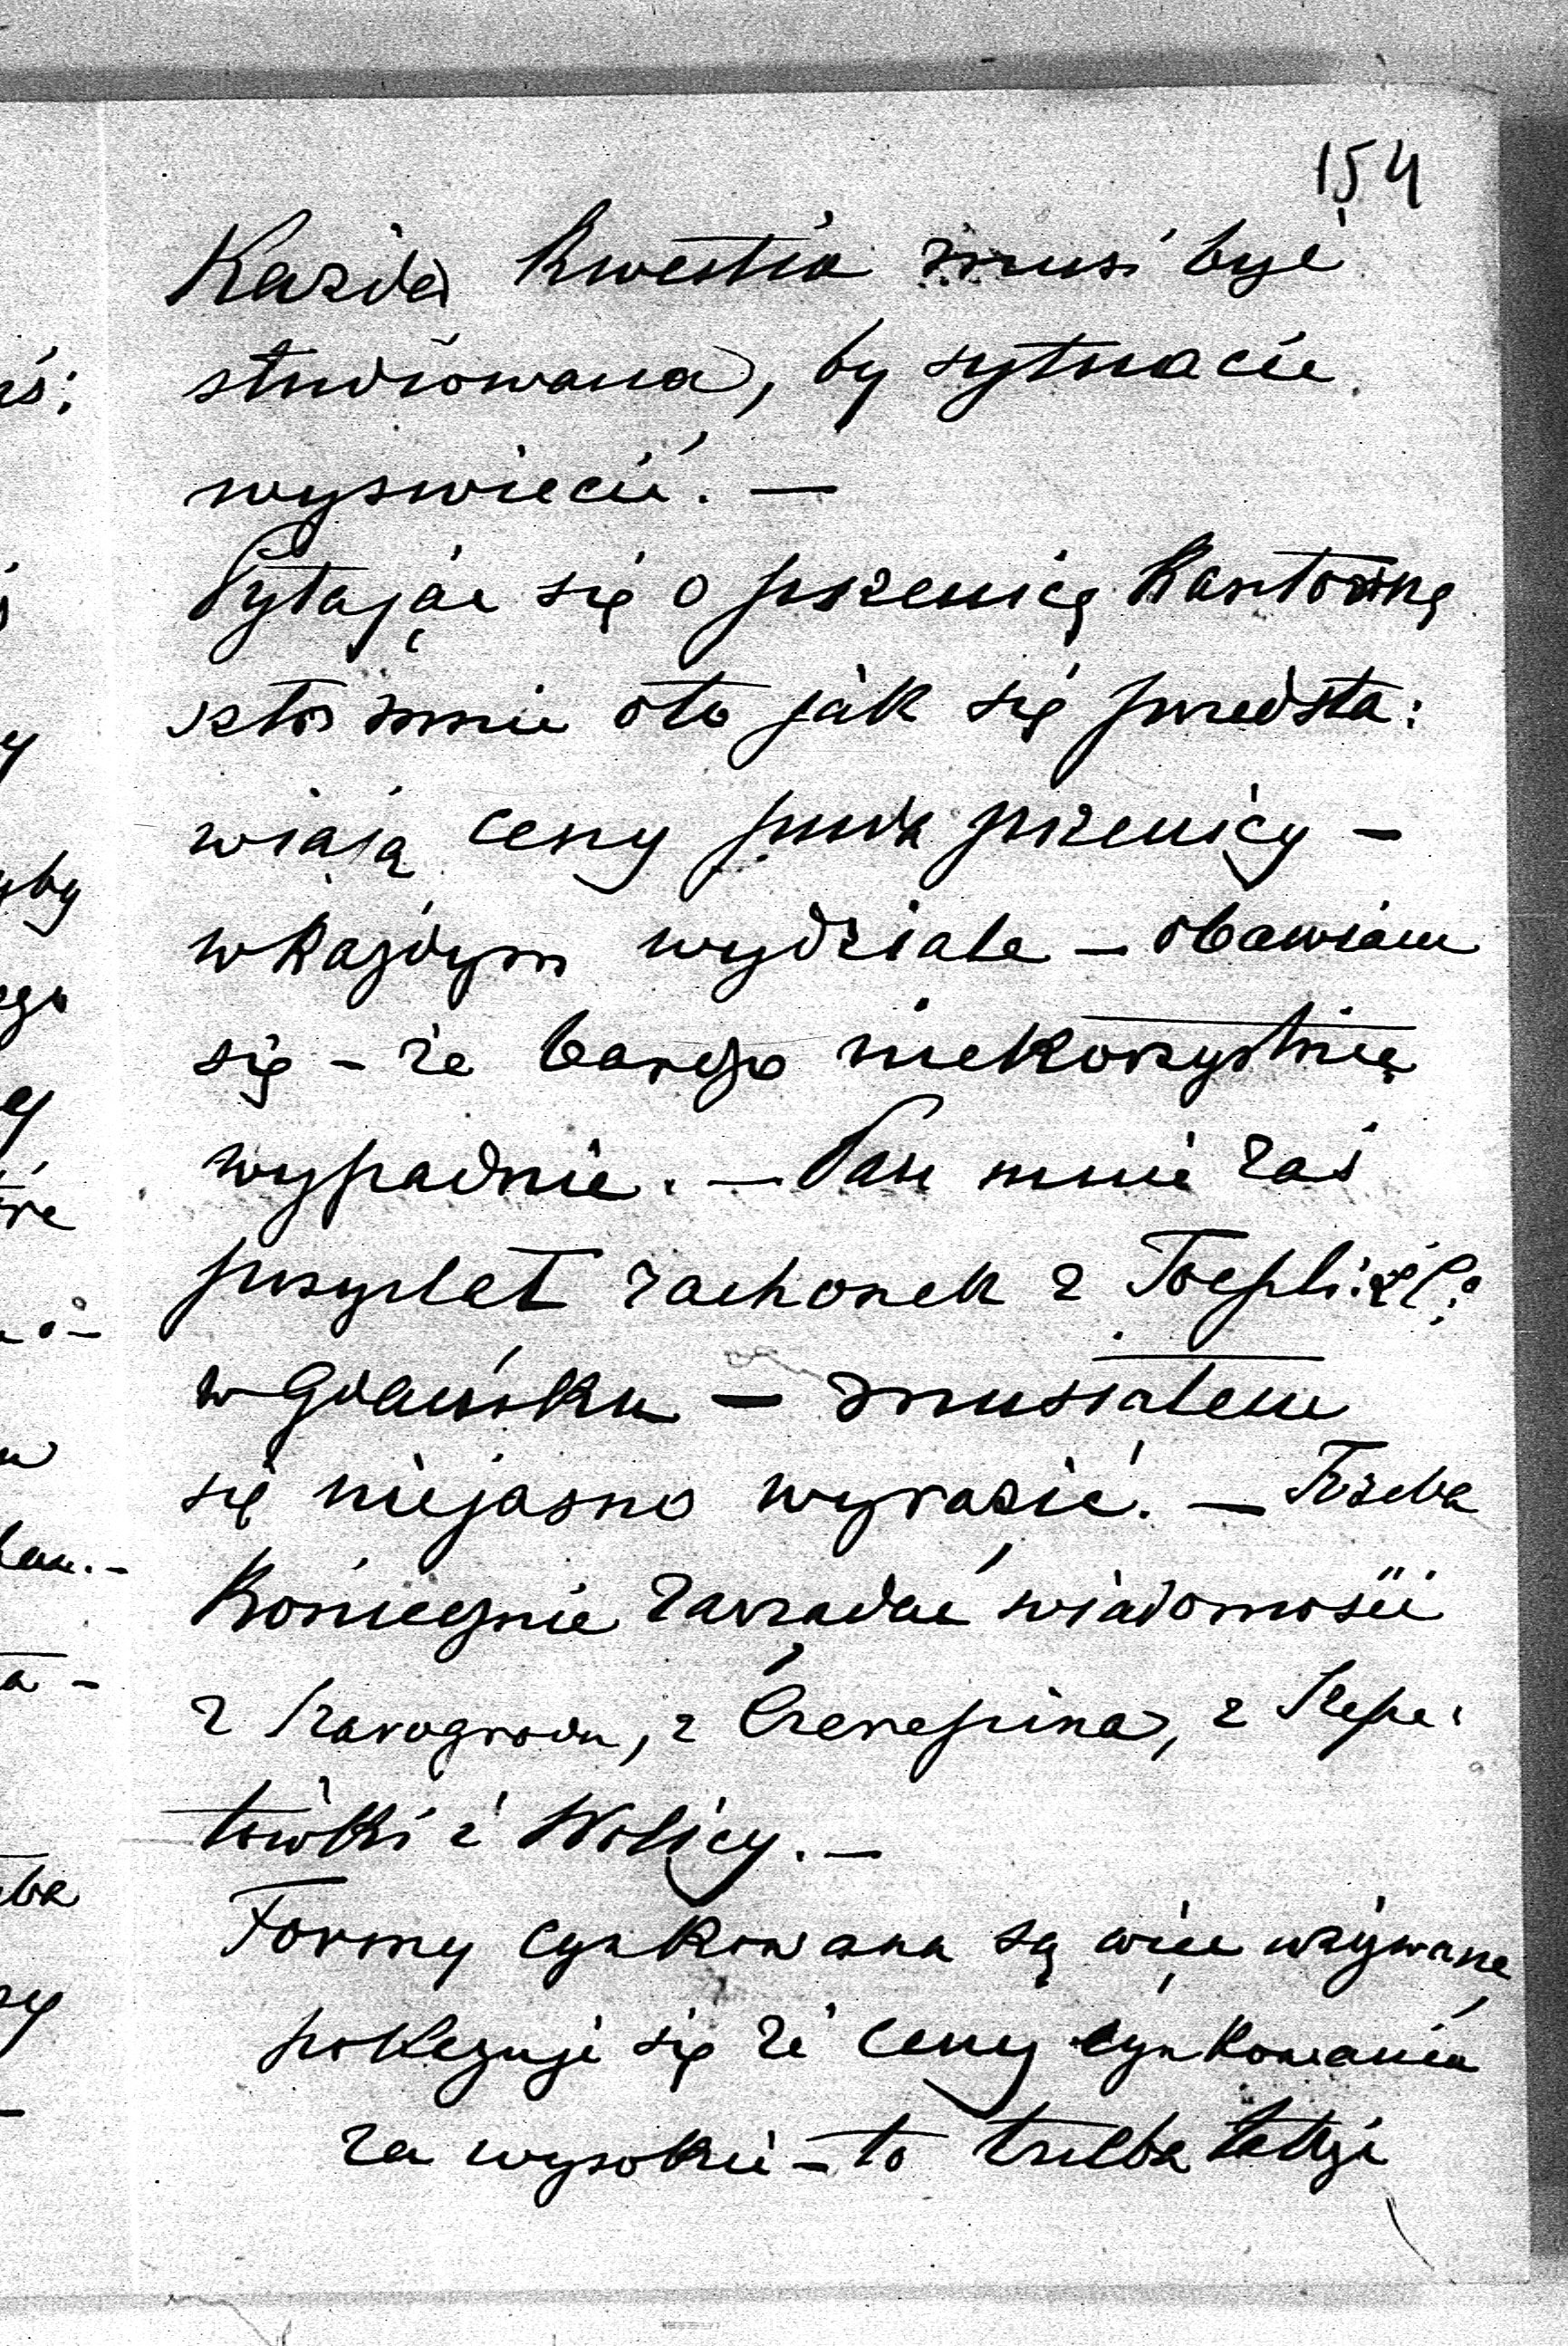 154
Każda kwestia musi być
studiowana, by sytuacie
wyswiecić. —
Pytając się o pszenicę
mnie oto jak się przedsta:
wiają ceny puda pszenicy —
w każdym wydziale — obawiam
się — że bardzo niekorzystnie
wypadnie. — Pan mnie zaś
przysłał rachonek z Toeplitz
w Gdańsku — musiałem
się niejasno wyrazić. — Trzeba
koniecznie zarządać wiadomości
z Szarogrodu, z Czerepina, z Szepe:
tówki i Wolicy. —
Formy cynkowana są więc używane,
pokazuje się że ceny cynkowania
za wysokie — to trzeba